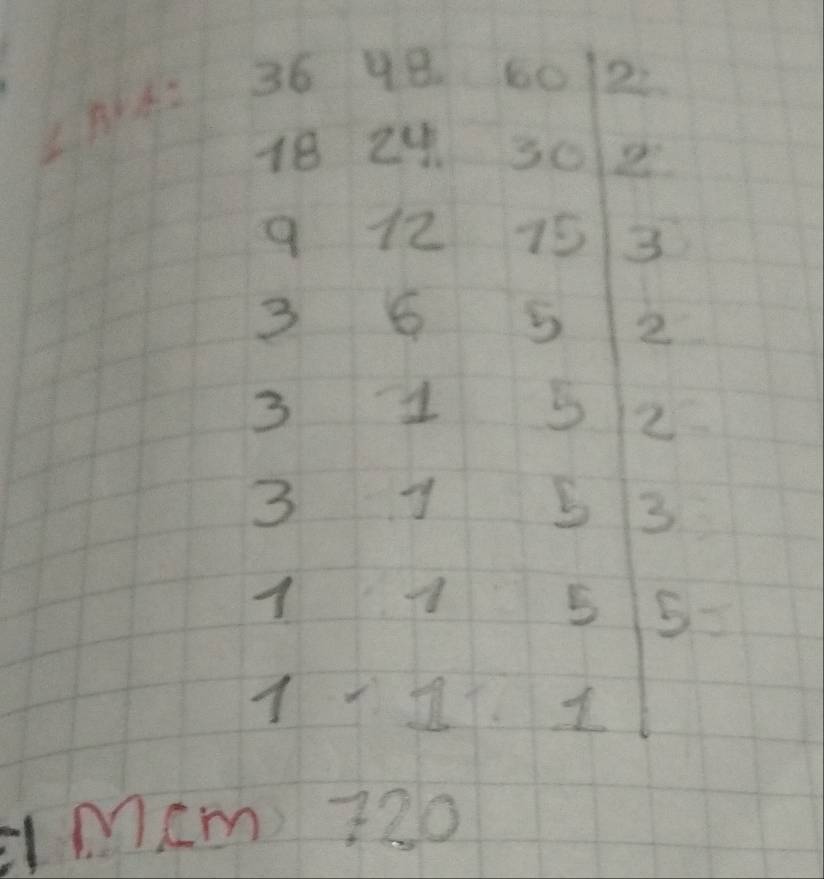 36 48 60 2
18 24 30 2
9 12 15 3
3 6 5 2
3 1 5 2
3 1 5 3
1 1 5 5
1 1 1
El mcm 720